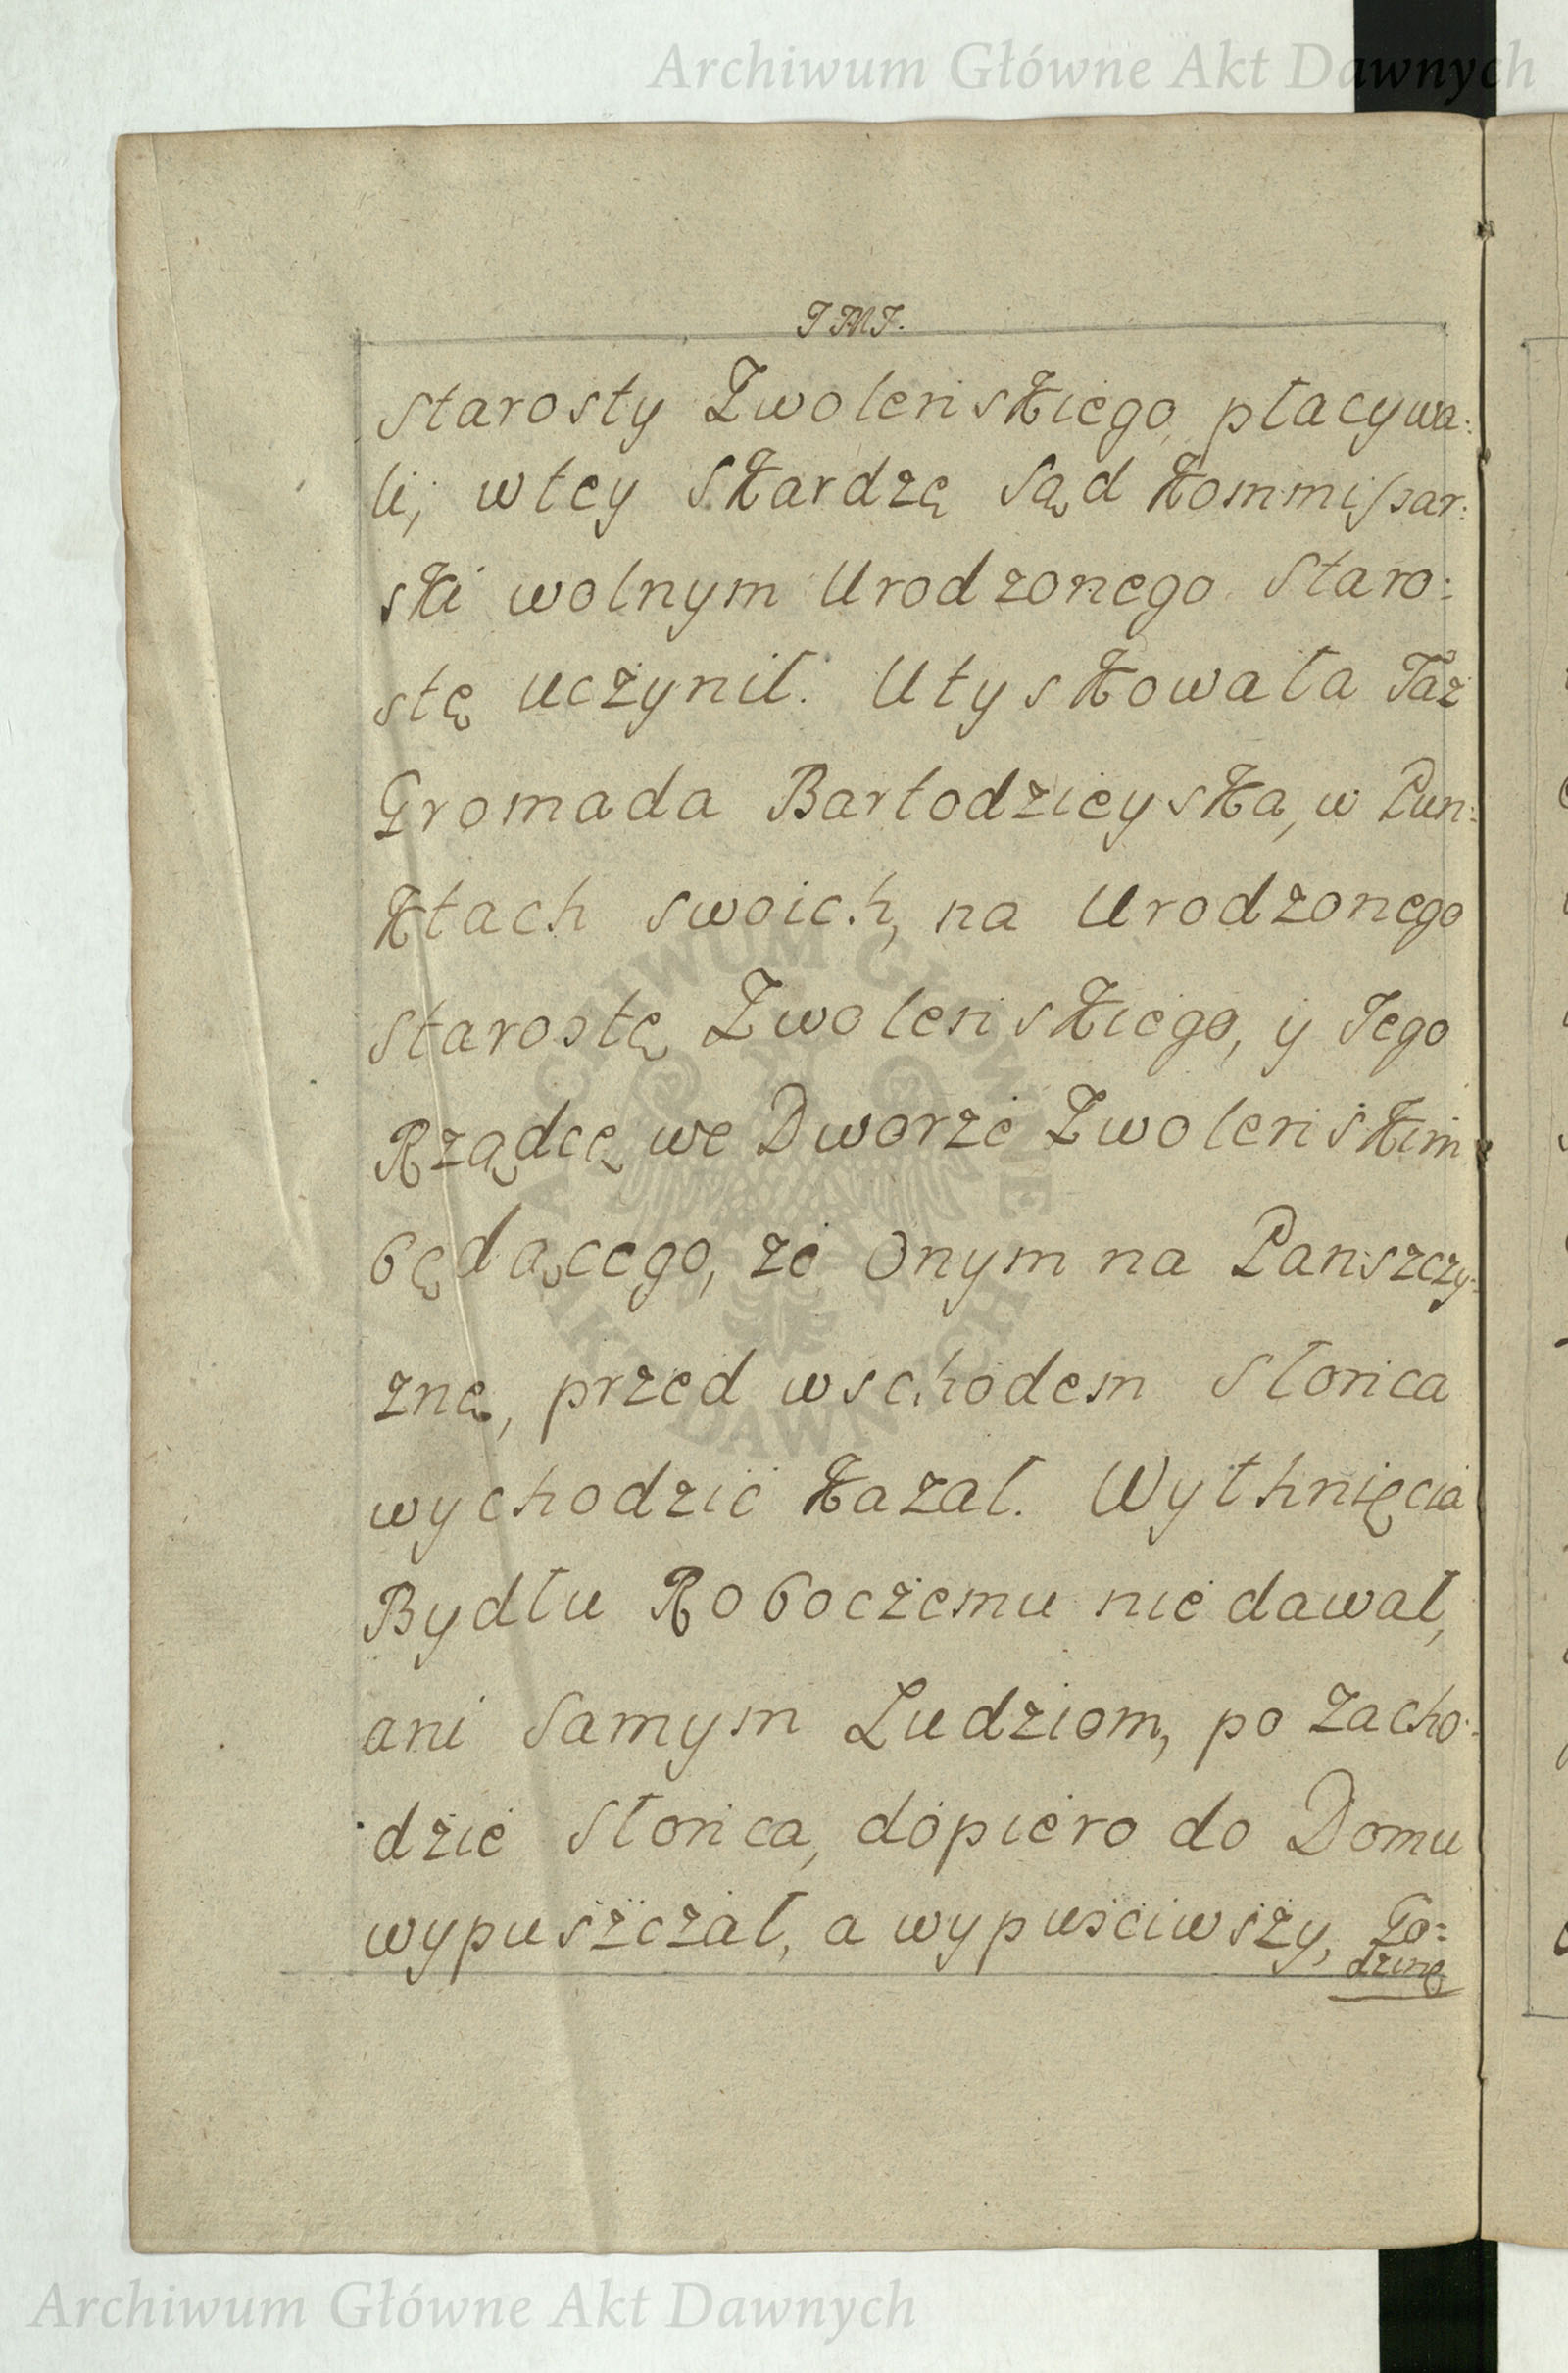 Archiwum Główne Akt Dawnych
starosty Zwoleńskiego płacywa:
li, wtey skardze Sąd Kommissar:
ski wolnym Urodzonego Staro:
stę uczynił. Utyskowała Taż
Gromada Bartodzieyska, w Pun:
ktach swoich, na Urodzonego
starostę Zwoleńskiego, y Jego
Rządcę we Dworze Zwoleńskim
będącego, że Onym na Panszczy:
znę, przed wschodem Słońca
wychodzić kazał. Wythnięcia
Bydłu Roboczemu nie dawał,
ani Samym Ludziom, po Zacho:
dzie Słońca, dopiero do Domu
wypuszczał, a wypuściwszy, Go:
dzinę
ARCHIWUM GŁÓWNE
AKT DAWNYCH
Archiwum Główne Akt Dawnych